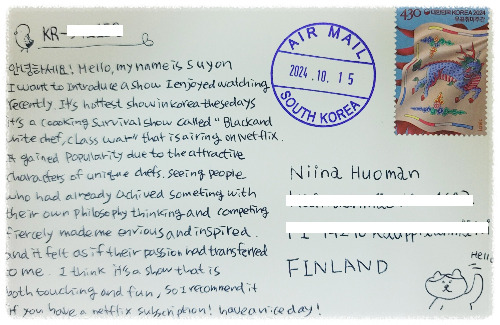 KR-
안녕하세요! Hello, my name is Suyon
I want to introduce a show I enjoyed watching
recently. It's hottest show in korea thesedays
it's a coocking survival show called "Black and
white chef, class war" that is airing on Netflix.
It gained popularity due to the attractive
characters of unique chefs. seeing people
who had already achived someting with
their own philosophy thinking and competing
fiercely made me envious and inspired.
and it felt as if their passion had transferred
to me. I think it's a show that is
both touching and fun, so I recommend it
if you have a netflix subscription! have a nice day!
AIR MAIL
2024.10.15
SOUTH KOREA
430 대한민국 KOREA 2024
Niina Huoman
FINLAND
Hello